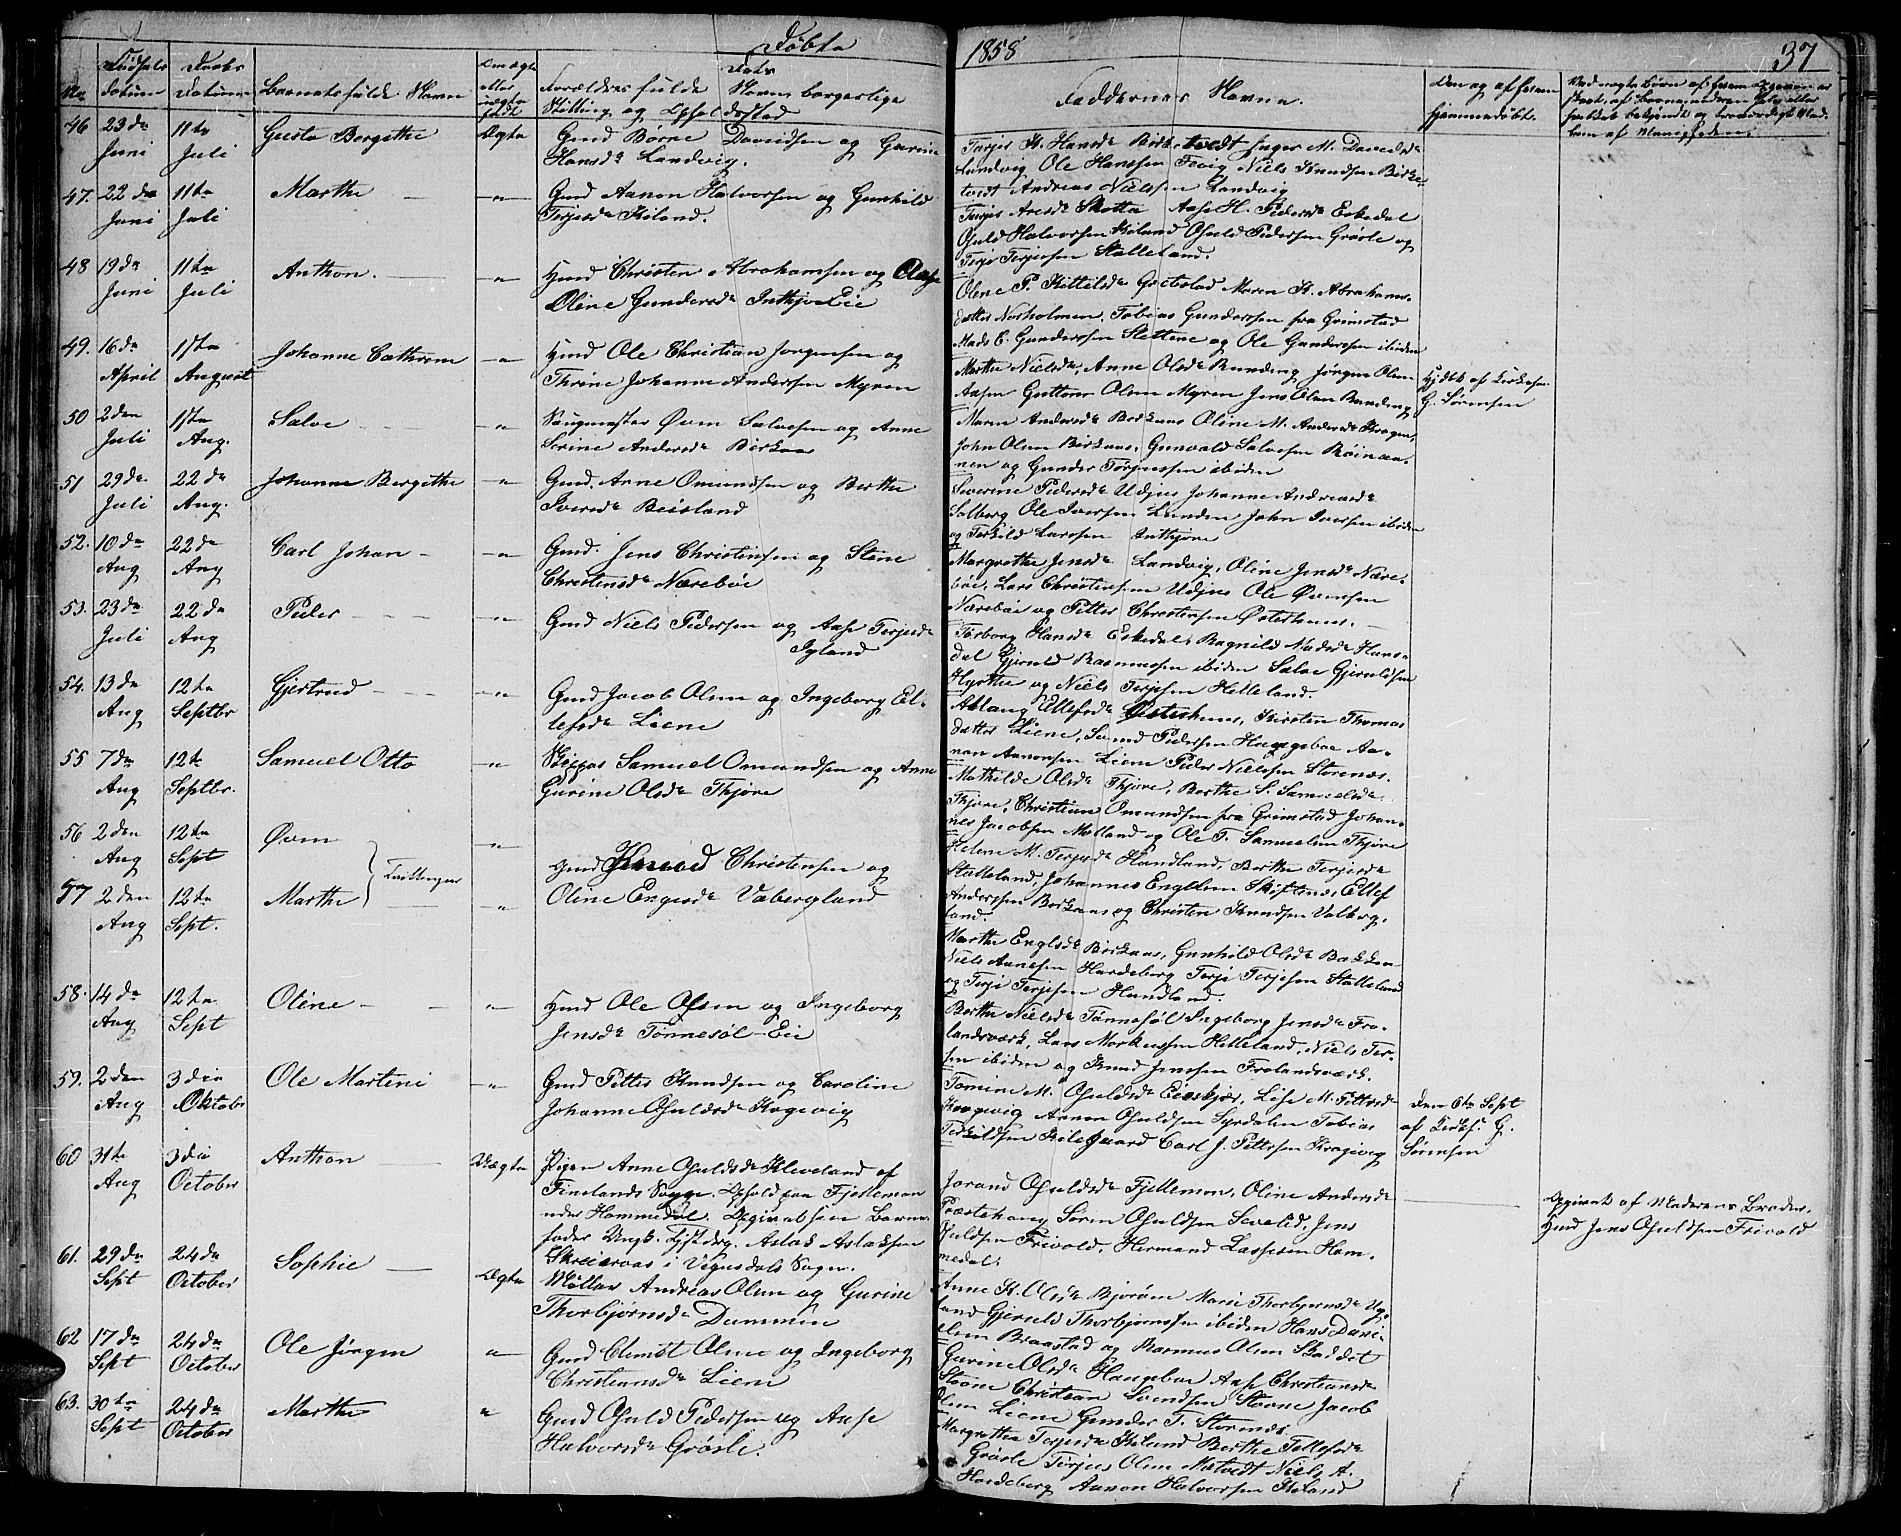 Døbte
1858
37
No
Fødsels
Datum
Daabs
Datum
Barnets fulde Navn
Om ægte
eller
uægte
født
Forældres fulde Navn borgerlige
Stilling og Opholdssted
Faddernes Navne.
Den og af hvem
hjemmedøbt.
46
23de
Juni
11te
Juli
Guste Bergithe
Ægte
Gmd Børne Davidsen og Gurine
Hansdr Landvig.
Terjes K. Hansdr Birketvedt Inger M. Davidsdr
Landvig Ole Hanssen Fevig Niels Knudsen Birke-
tvedt Andreas Nielssen Landvig
47.
22de
Juni
11te
Juli
Marthe
Gmd Aanon Halvorsen og Gunhild
Terjesdr Kiland.
Aase H. Pedersdr Eskedal
Osuld Halvorsen Kiland Osuld Pedersen Grøsle og
Terje Terjessen Stalleland.
48
19de
Juni
11te
Juli
Anthon.
Hmd Christen Abrahamsen og Aase
Oline Gundersdr Inthjøre Eie
Olene P. Kittilsdr Grefstad Maren K. Abrahams-
datter Norholmen. Tobias Gundersen fra Grimstad
Mads E. Gunderssen Slettene og Ole Gunderssen ibiden
49.
16de
April
1ste
August
Johanne Cathrine
Hmd Ole Christian Jørgensen og
Thrine Johanne Andersen Myren
Marthe Nielsdr, Anne Olsdr Bunding, Jørgen Olsen
Aasen Guttorm Olsen Myren Jens Olsen Bunding
Hjdbt af Kirkes.
G. Sørensen
50
2den
Juli
1ste
Aug.
Salve
Saugmester Øvm Salvesen og Anne
Serine Andersdr Birkaas
Maren Andersdr Berkaas Oline M. Andersdr Kragen,
John Olsen Birkaas, Gunvald Salvesen Røinaa-
nen og Gunder Torjussen ibiden
51
29de
Juli
22de
Aug.
Johanne Bergithe
Gmd. Arne Omundsen og Berthe
Iversdr Beisland
Severine Pedersdr Udjus Johanne Andreasdr
Solberg Ole Iversen Lunden John Iversen ibiden
og Terkild Larssen Inthjøre
52.
10de
Aug
22de
Aug
Carl Johan
Gmd. Jens Christensen og Stine
Christensdr Nærebøe
Margrethe Jensdr Landvig, Oline Jensdr Nære-
bøe, Lars Christensen Udjus Ole Øvensen
Nærebøe og Petter Christensen Østerhuus.
53.
23de
Juli
22de
Aug
Peder
Gmd Niels Pedersen og Aase Terjesdr
Igland
Torborg Hansdr Eskedal, Ragnild Madsdr Hans-
dal Gjeruld Rasmussen ibiden Salve Gjeruldsen
og Niels Terjesen Helleland.
54.
13de
Aug
12te
Septbr
Gjertrud
Gmd Jacob Olsen og Ingeborg El-
lefsdr Liene
Aslaug Ellefsdr Østerhuus, Kirsten Thomas
datter Liene, Svend Pedersen Haugeboe Aa-
non Aanonsen Liene Peder Nielsen Storenes.
55
7de
Aug
12te
Septbr.
Samuel Otto
Skipper Samuel Omundsen og Anne
Gurine Olsdr Thjøre
Mathilde Olsdr Thjøre, Berthe S. Samuelsdr
Thjøre, Christian Omundsen fra Grimstad Johan-
nes Jacobsen Molland og Ole T. Samuelsen Thjøre
56
2den
Aug
12te
Sept
Øvm
Tvillinger
Gmd Knud Christensen og
Oline Engesdr Vabergland
Helene M. Terjesdr Hundland, Berthe Terjesdr
Stalleland, Johannes Englesen Skiftenes, Ellef
Anderssen Berkaas og Christen Knudsen Valberg-
land.
57
2den
Aug
12te
Sept.
Marthe
Marthe Englsdr Birkaas, Gunhild Olsdr Bakken
Niels Aanesen Hardeberg Terje Terjesen Stalleland
og Terje Terjesen Hundland.
58.
14de
Aug
12te
Sept
Oline
Hmd Ole Olsen og Ingeborg
Jensdr Tønnesøl-Eie
Berthe Nielsdr Tønnesøl Ingeborg Jensdr Fro-
landsværk, Lars Markussen Helleland, Niels Ter-
sen ibiden og Knud Jenssen Frolandsværk.
59.
2den
Aug
3die
Oktober
Ole Martini
Gmd Petter Knudsen og Caroline
Johanne Osuldsdr Kragevig
Tomine M. Osuldsdr Eieskjær, Lise M. Pettersdr
Kragevig Aanon Osuldsen Syrdalen Tobias
Terkildsen Kilegaard Carl J. Pettersen Kragevig
Den 6te Sept
af Kirks. G.
Sørensen
60
31te
Aug
3die
October
Anthon
Uægte
Pigen Anne Osuldsdr Kleveland af
Finelands Sogn. Ophold paa Fjellemon
under Hommedal. Opgiven som Barne-
fader Ungk. Aslak Aslaksen
Skreieraas i Vegusdals Sogn.
Jorand Osuldsdr Fjellemon, Oline Andersdr
Præstehaug Søren Osuldsen Sevelid, Jens
Osuldsen Frivold, Hermand Lassesen Hom-
medal.
Opgivet af Moderens Broder,
Hmd Jens Osuldsen Frivold
61.
29de
Sept
24de
October
Sophie
Ægte
Møller Andreas Olsen og Gurine
Thorbjørnsdr Dammen
Anne K. Olsdr Bjoråen Marie Thorbjørnsdr Ug-
land Gjeruld Thorbjørnssen ibiden Hans Dani-
elsen Braastad og Rasmus Olsen Skaddet
62
17de
Sept
24de
October
Ole Jørgen
Gmd Clemet Olsen og Ingeborg
Christiansdr Liene
Gurine Olsdr Haugeboe Aase Christiansdr
Stoene Christian Svendsen Stoene Jacob
Olsen Liene Gunder T. Storenes
63.
30te
Sept
24de
October
Marthe
Gmd Osuld Pedersen og Aase
Halvorsdr Grøsle.
Margrethe Terjesdr Kiland Berthe Tellefsdr
Grøsle Terjus Olsen Matvedt Niels A.
Hardeberg Aanon Halvorsen Kiland